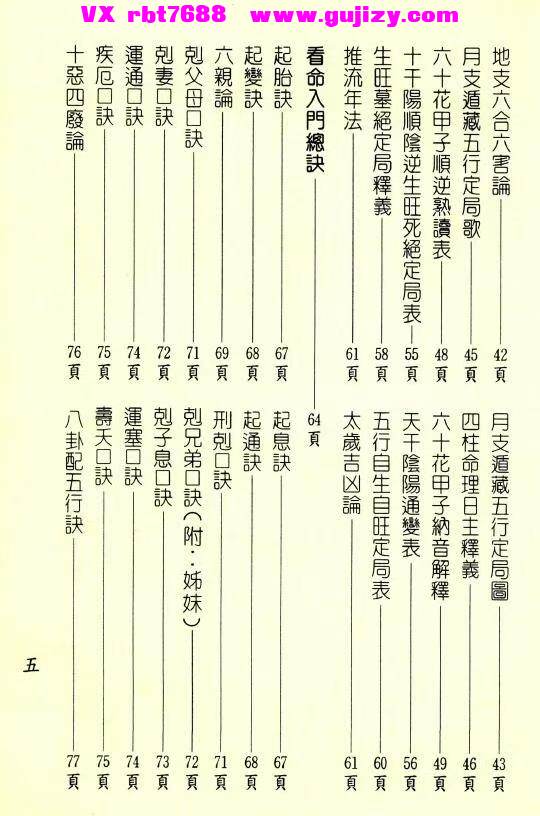 VX rbt7688 www.gujizy.com
地支六合六害論 42頁
月支遁藏五行定局圖 43頁
月支遁藏五行定局歌 45頁
四柱命理日主釋義 46頁
六十花甲子順逆熟讀表 48頁
六十花甲子納音解釋 49頁
十干陽順陰逆生旺死絕定局表 55頁
天干陰陽通變表 56頁
生旺墓絕定局釋義 58頁
五行自生自旺定局表 60頁
推流年法 61頁
太歲吉凶論 61頁
看命入門總訣 64頁
起胎訣 67頁
起息訣 67頁
起變訣 68頁
起通訣 68頁
六親論 69頁
刑剋口訣 71頁
剋父母口訣 71頁
剋兄弟口訣(附:姊妹) 72頁
剋妻口訣 72頁
剋子息口訣 73頁
運通口訣 74頁
運塞口訣 74頁
疾厄口訣 75頁
壽夭口訣 75頁
十惡四廢論 76頁
八卦配五行訣 77頁
五